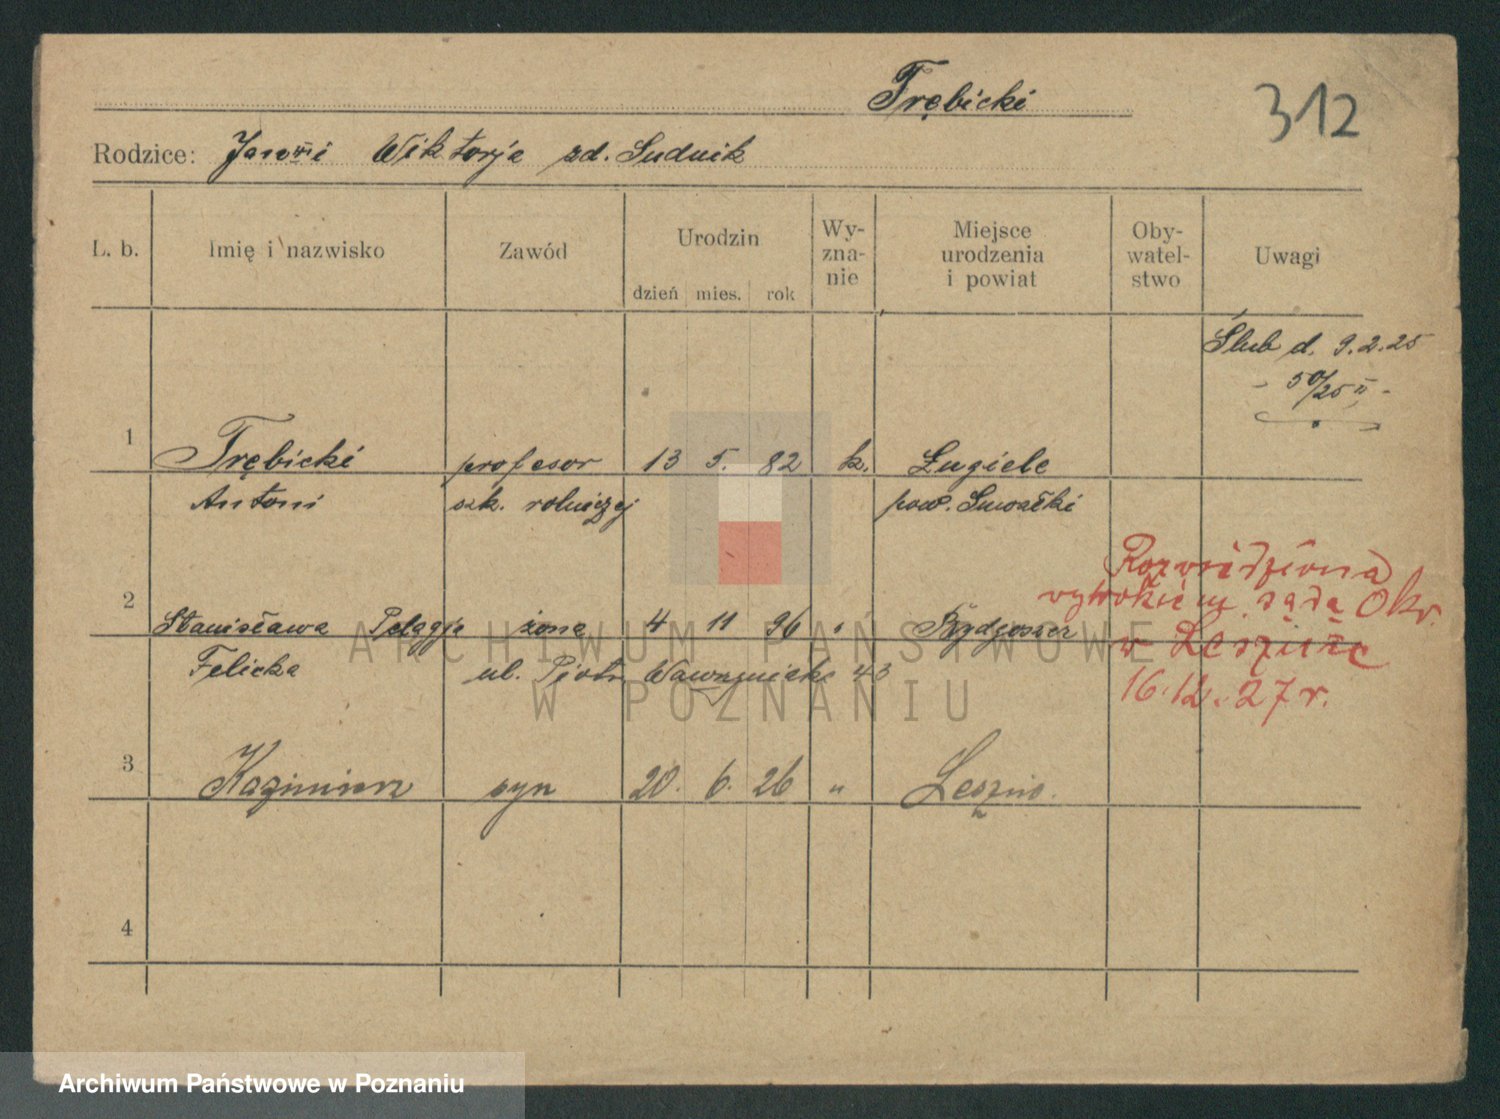 Trębicki
312
Rodzice: Wiktorja zd. Sudnik
L. b. Imię i nazwisko Zawód Urodzin dzień mies. rok Wy-zna-nie Miejsce urodzenia i powiat Oby-watel-stwo Uwagi
Ślub d. 9.2.25
- 50/25 II -
1 Trębicki profesor 13 5. 82 k. Ługiele
Antoni szk. rolniczej pow. Suwałki
Rozwiedziona
wyrokiem sądu Okr.
2 Stanisława Pelagja żona 4 11 96 " Bydgoszcz
w Lesznie
Felicka ul. Piotr Wawrzyniaka 43
16.12.27 r.
3 Kazimierz syn 20. 6. 26 " Leszno.
4
ARCHIWUM PAŃSTWOWE
W POZNANIU
Archiwum Państwowe w Poznaniu